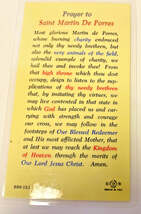 Prayer to
Saint Martin De Porres
Most glorious Martin de Porres,
whose burning charity embraced
not only thy needy brethren, but
also the very animals of the field,
splendid example of charity, we
hail thee and invoke thee! From
that high throne which thou dost
occupy, deign to listen to the supplications of
thy needy brethren
that, by imitating thy virtues, we
may live contented in that state in
which God has placed us and carrying
with strength and courage
our cross, we may follow in the
footsteps of Our Blessed Redeemer
and His most afflicted Mother, that
at last we may reach the Kingdom
of Heaven through the merits of
Our Lord Jesus Christ. Amen.